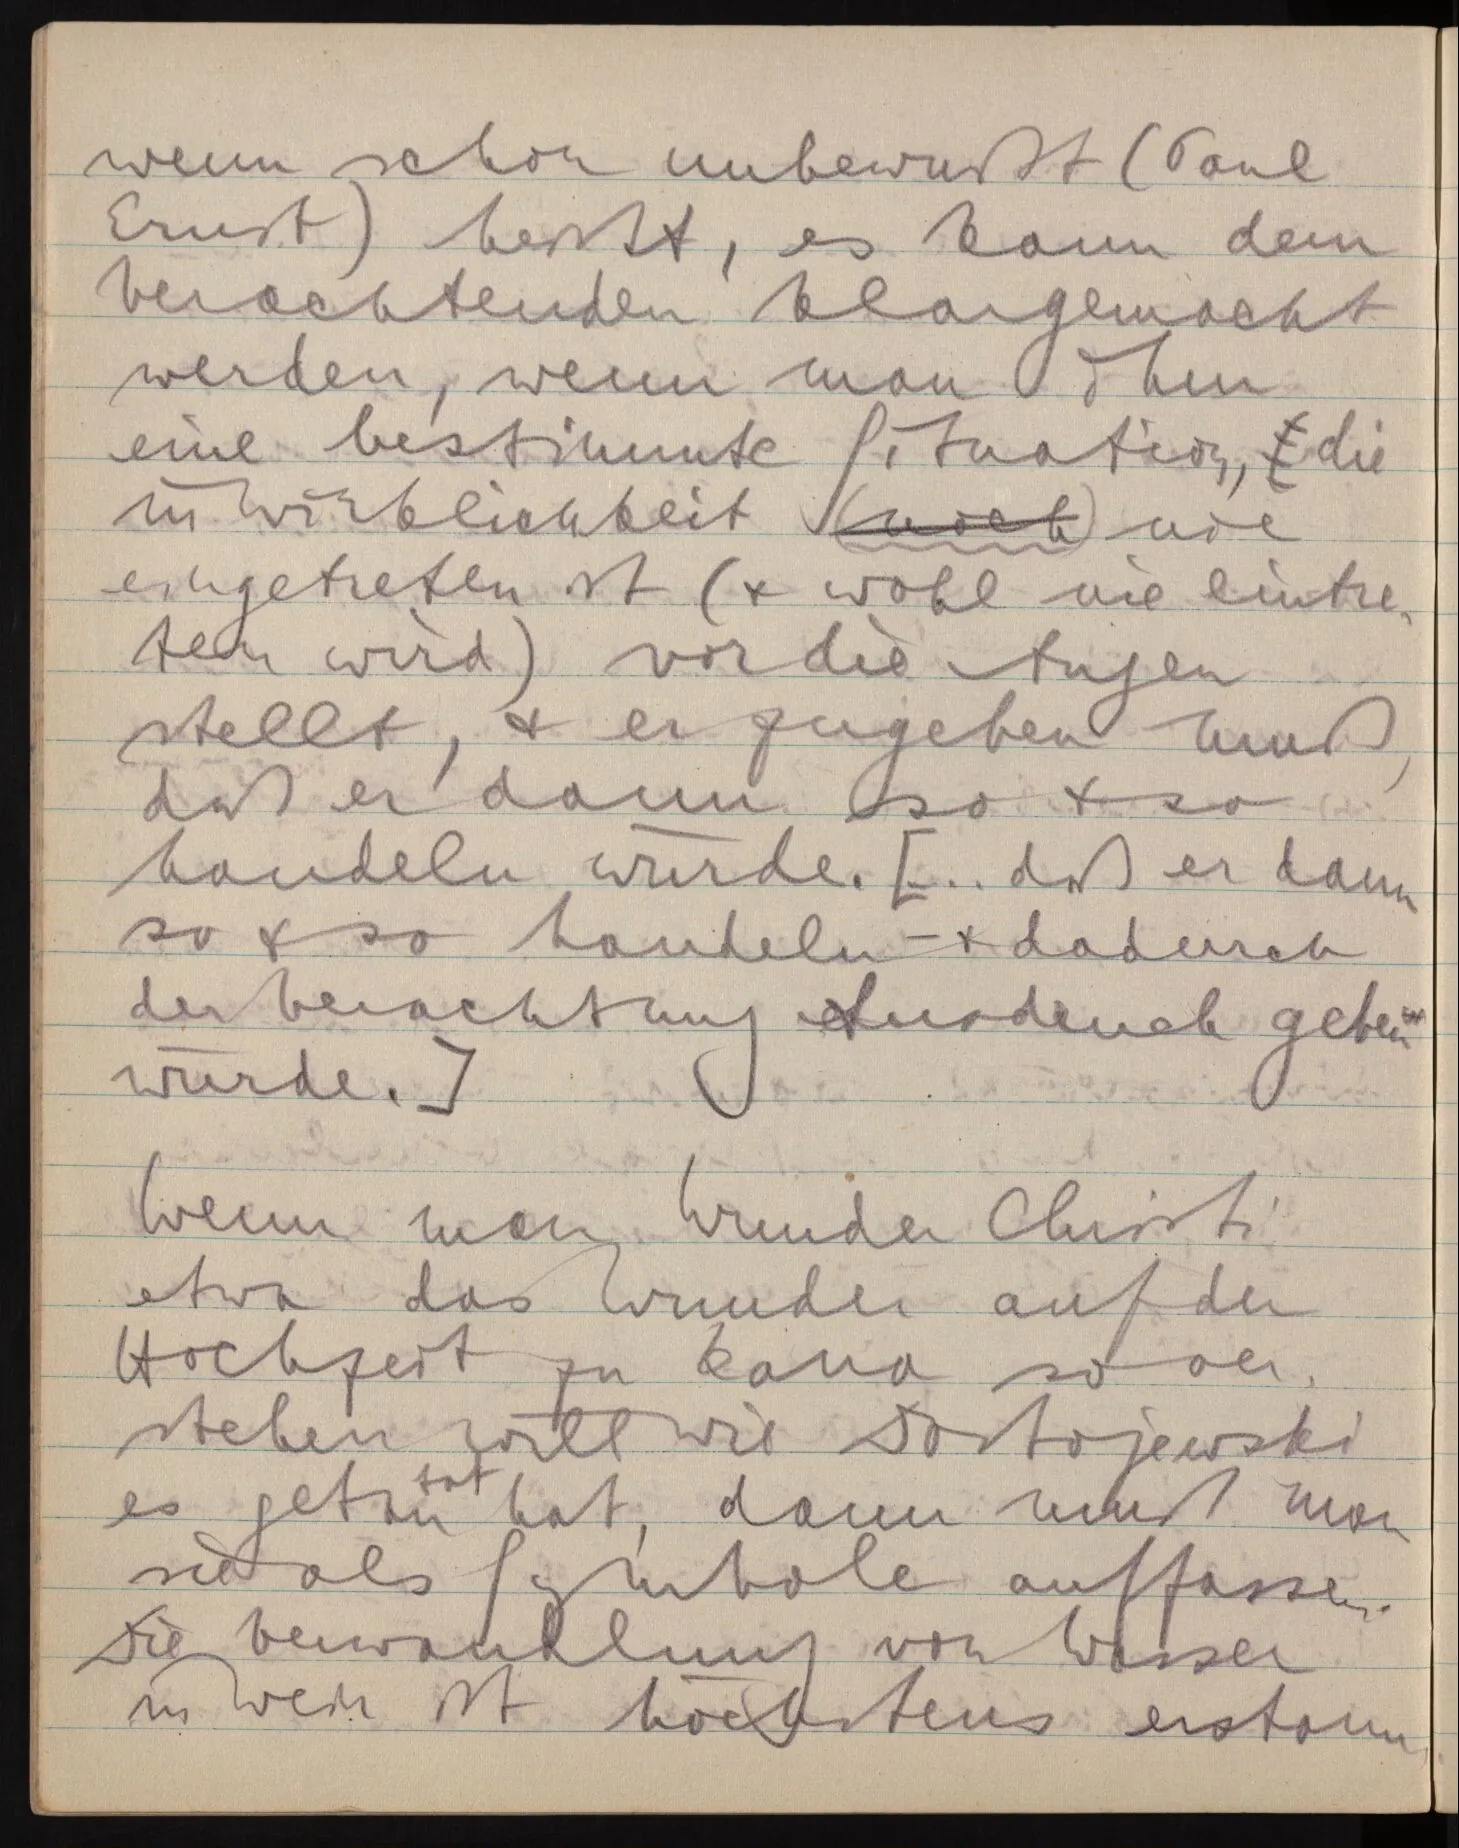 wenn schon unbewußt (Paul
Ernst) heißt, es kann dem
Verachtenden klargemacht
werden, wenn man ihm
eine bestimmte Situation, die
in Wirklichkeit (noch) nie
eingetreten ist (& wohl nie eintre-
ten wird) vor die Augen
stellt, & er zugeben muß,
daß er dann so & so
handeln würde. [... daß er dann
so & so handeln – & dadurch
der Verachtung Ausdruck geben
würde.]
Wenn man Wunder Christi
etwa das Wunder auf der
Hochzeit zu Kana so ver-
stehen will wie Dostojewski
es getan tat hat, dann muß man
sie als Symbole auffassen.
Die Verwandlung von Wasser
in Wein ist höchstens erstaun-